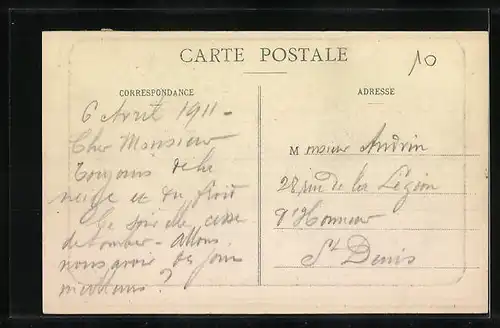 CARTE POSTALE
10
CORRESPONDANCE
ADRESSE
6 Avril 1911 -
Cher Monsieur
Toujours de la
neige et du froid
Ce soir elle cesse
de tomber - Allons
nous avoir des jours
meilleurs ?
Monsieur Andrin
28 rue de la Légion
d'Honneur
St Denis